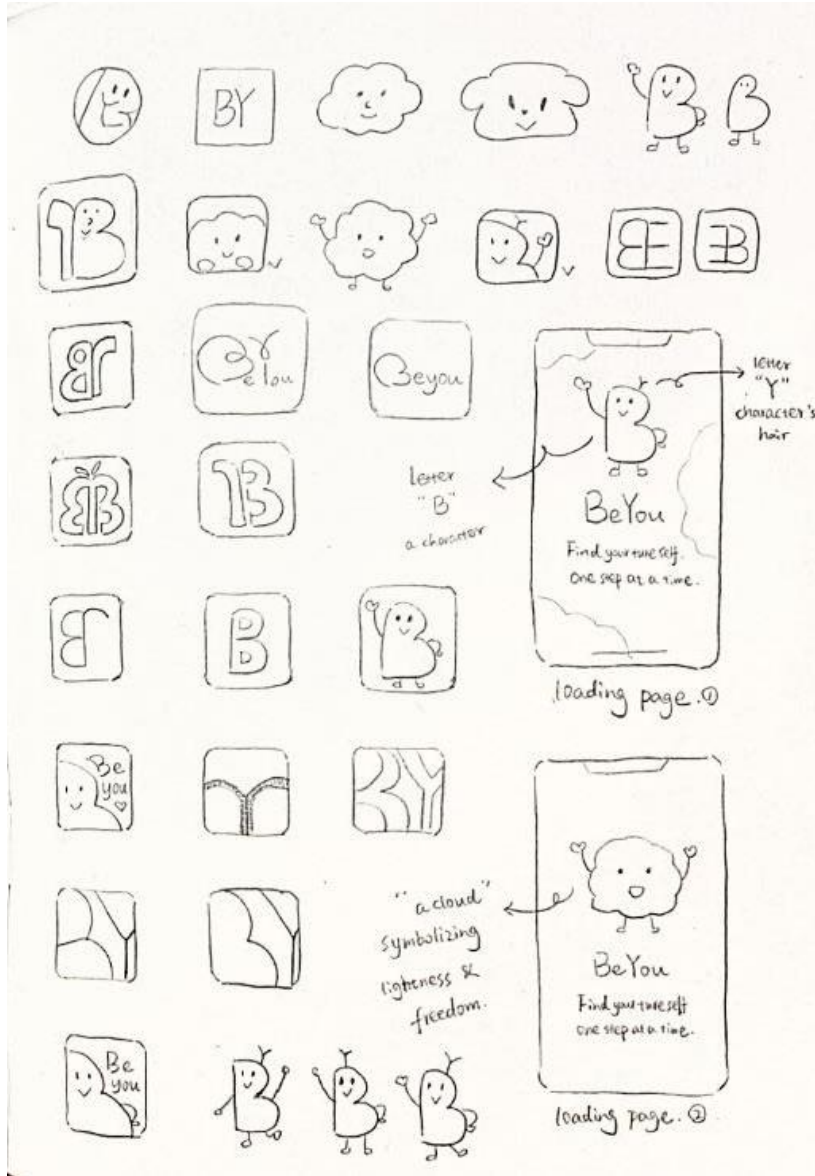 BY
B
BE
EB
BY
BeYou
Beyou
letter
"Y"
character's
hair
letter
"B"
a character
BeYou
Find your ture self.
One step at a time.
B
B
loading page. ①
Be
you
BY
"a cloud"
symbolizing
lightness &
freedom.
BeYou
Find your ture self
one step at a time.
Be
you
loading page. ②